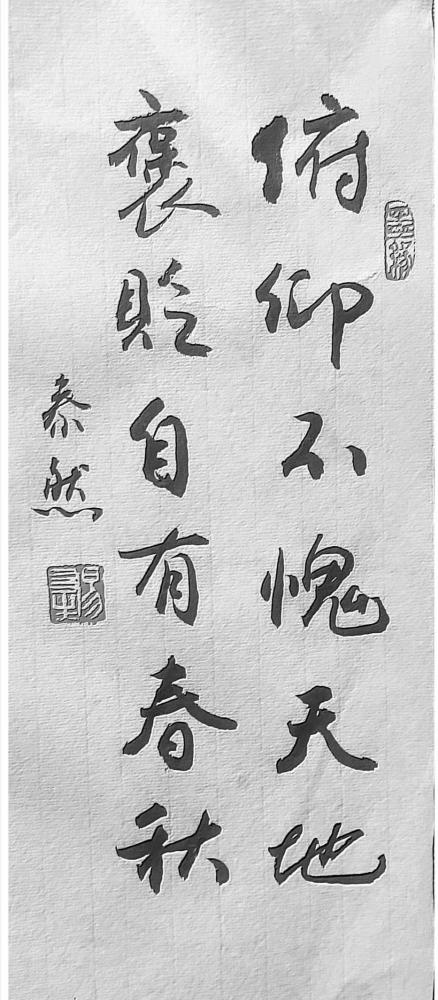 俯仰不愧天地
褒贬自有春秋
泰然
墨缘